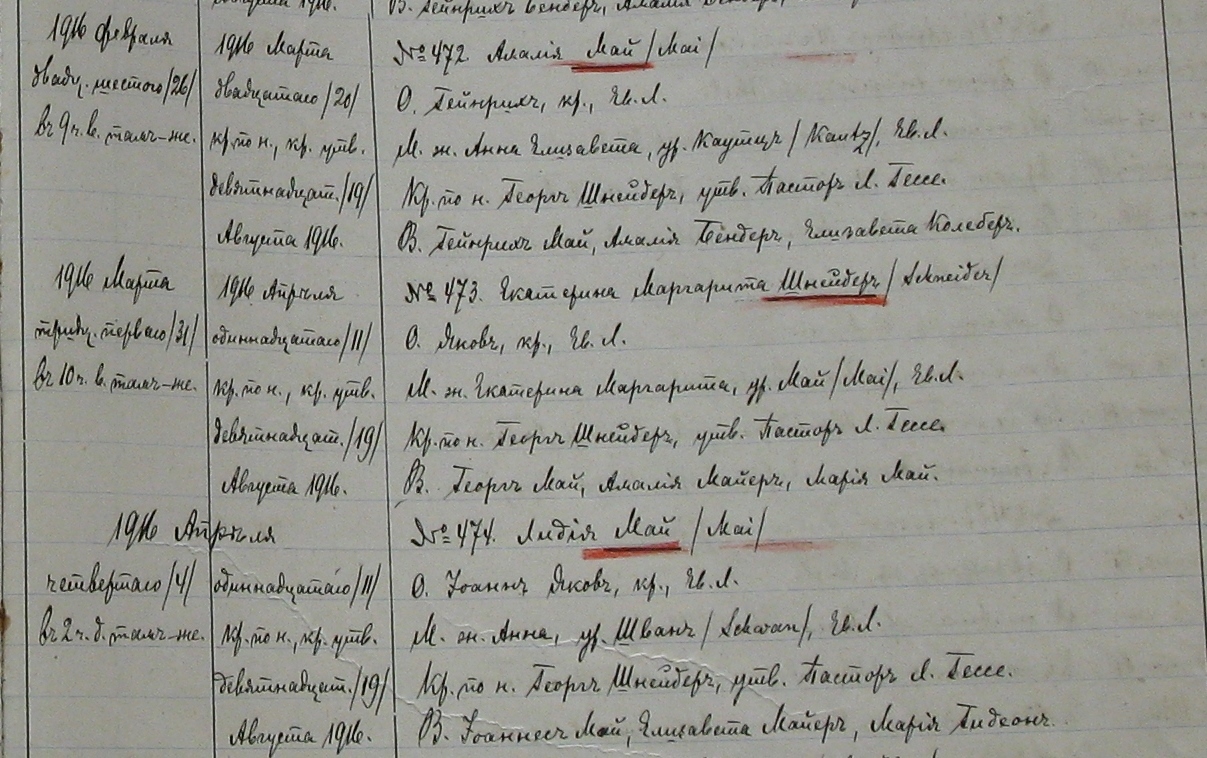 В. Гейнрихъ Бендеръ, Амалія
1916 февраля 1916 Марта № 472. Амалія Май /Mai/
двадц. шестого /26/ двадцатаго /20/ О. Гейнрихъ, кр., Ев. Л.
въ 9 ч. в. тамъ-же. кр. по н., кр. утв. М. ж. Анна Елизавета, ур. Каутцъ /Kautz/, Ев. Л.
девятнадцат. /19/ Кр. по н. Георгъ Шнейдеръ, утв. Пасторъ Л. Гессе.
Августа 1916. В. Гейнрихъ Май, Амалія Бендеръ, Елизавета Колеберъ.
1916 Марта 1916 Апрѣля № 473. Екатерина Маргарита Шнейдеръ /Schneider/
тридц. перваго /31/ одиннадцатаго /11/ О. Яковъ, кр., Ев. Л.
въ 10 ч. в. тамъ-же. кр. по н., кр. утв. М. ж. Екатерина Маргарита, ур. Май /Mai/, Ев. Л.
девятнадцат. /19/ Кр. по н. Георгъ Шнейдеръ, утв. Пасторъ Л. Гессе.
Августа 1916. В. Георгъ Май, Амалія Майеръ, Марія Май.
1916 Апрѣля № 474. Лидія Май /Mai/
четвертаго /4/ одиннадцатаго /11/ О. Іоаннъ Яковъ, кр., Ев. Л.
въ 2 ч. д. тамъ-же. кр. по н., кр. утв. М. ж. Анна, ур. Шванъ /Schwan/, Ев. Л.
девятнадцат. /19/ Кр. по н. Георгъ Шнейдеръ, утв. Пасторъ Л. Гессе.
Августа 1916. В. Іоаннесъ Май, Елизавета Майеръ, Марія Гидеонъ.